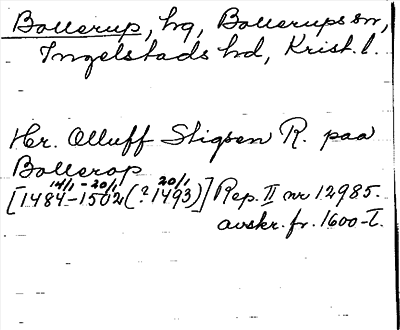 Bollerup, hg, Bollerups sn,
Ingelstads hd, Krist. l.
Hr. Olluff Stigsen R. paa
Bollerop
14/1 - 20/1 20/1
[1484-1502 (? 1493)] Rep. II nr 12985.
avskr. fr. 1600-t.